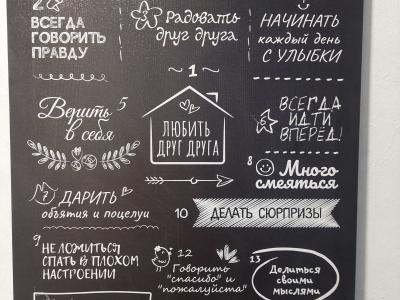 2
ВСЕГДА
ГОВОРИТЬ
ПРАВДУ
Радовать
друг друга
НАЧИНАТЬ
каждый день
С УЛЫБКИ
~ 1 ~
ЛЮБИТЬ
ДРУГ ДРУГА
Верить 5
в себя
6 ВСЕГДА
ИДТИ
ВПЕРЁД!
8 Много
смеяться
7 ДАРИТЬ
объятия и поцелуи
10 ДЕЛАТЬ СЮРПРИЗЫ
9
НЕ ЛОЖИТЬСЯ
СПАТЬ В ПЛОХОМ
НАСТРОЕНИИ
12
Говорить
"спасибо" и
"пожалуйста"
13
Делиться
своими
мыслями